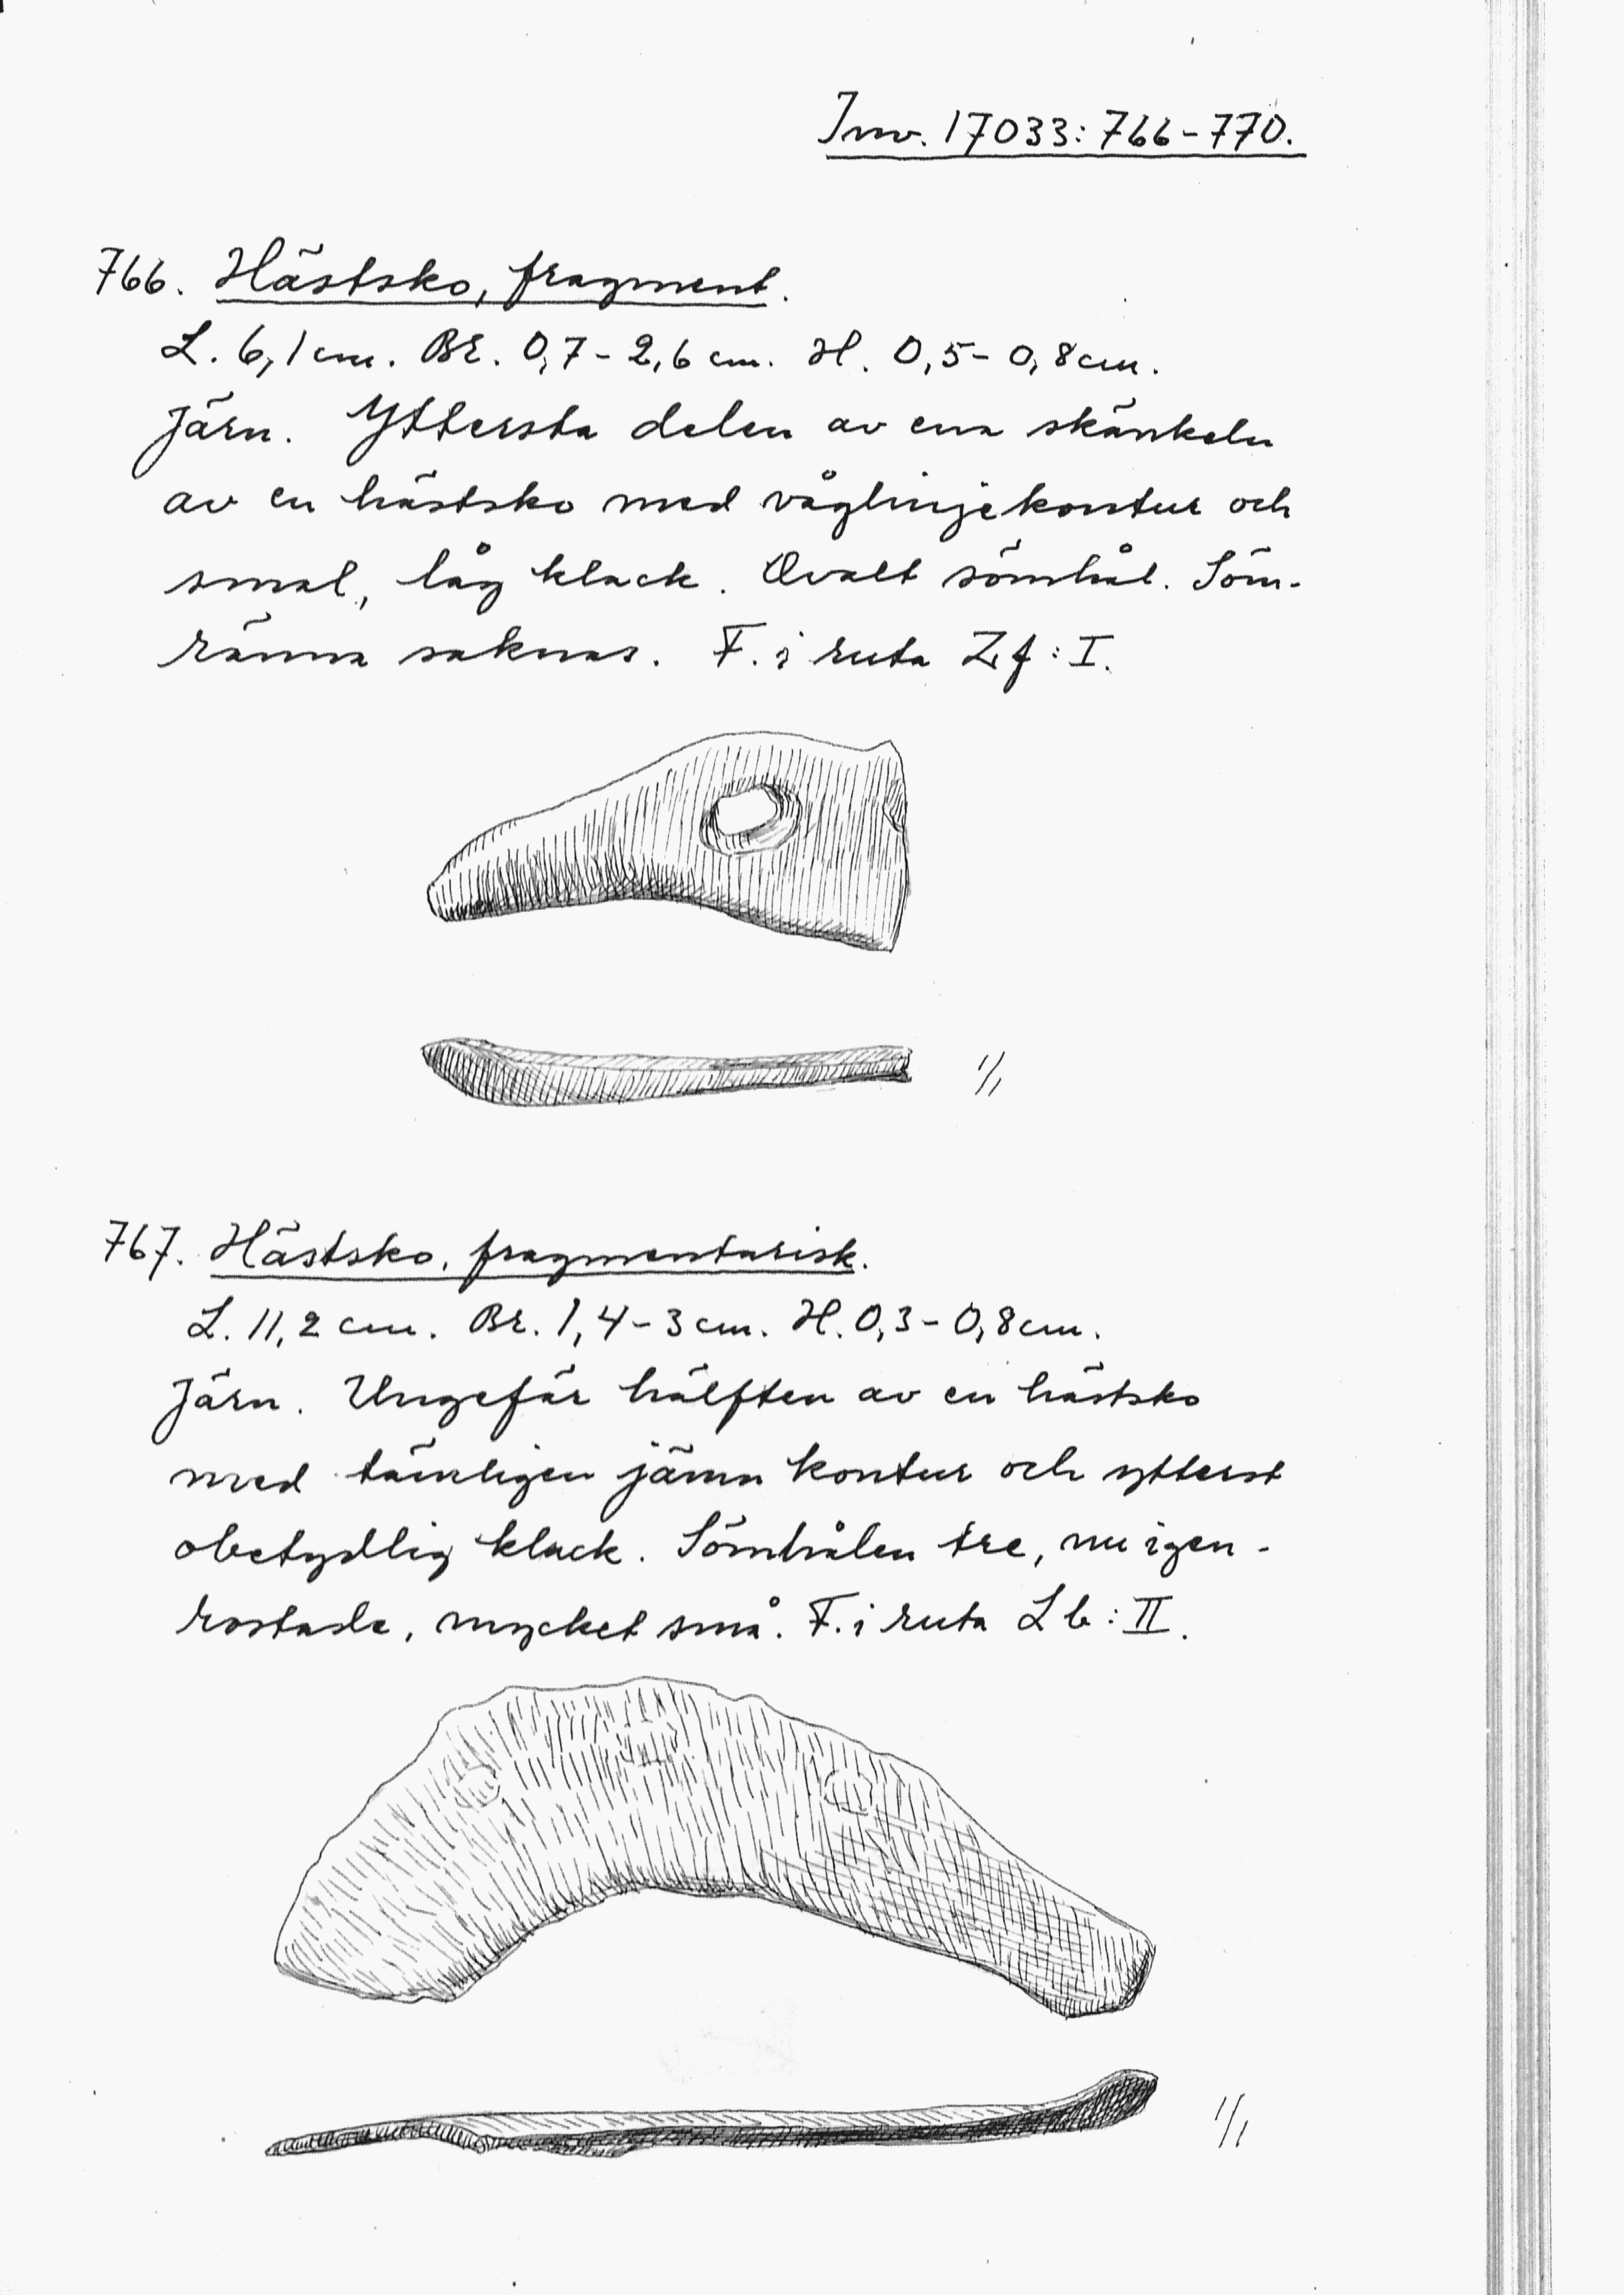 Inv. 17033: 766-770.
766. Hästsko, fragment.
L. 6,1 cm. Br. 0,7-2,6 cm. H. 0,5-0,8 cm.
Järn. Yttersta delen av ena skänkeln
av en hästsko med våglinjekontur och
smal, låg klack. Ovalt sömhål. Söm-
ränna saknas. F. i ruta Zf: I.
1/1
767. Hästsko, fragmentarisk.
L. 11,2 cm. Br. 1,4-3 cm. H. 0,3-0,8 cm.
Järn. Ungefär hälften av en hästsko
med tämligen jämn kontur och ytterst
obetydlig klack. Sömhålen tre, nu igen-
rostade, mycket små. F. i ruta Lb: II.
1/1